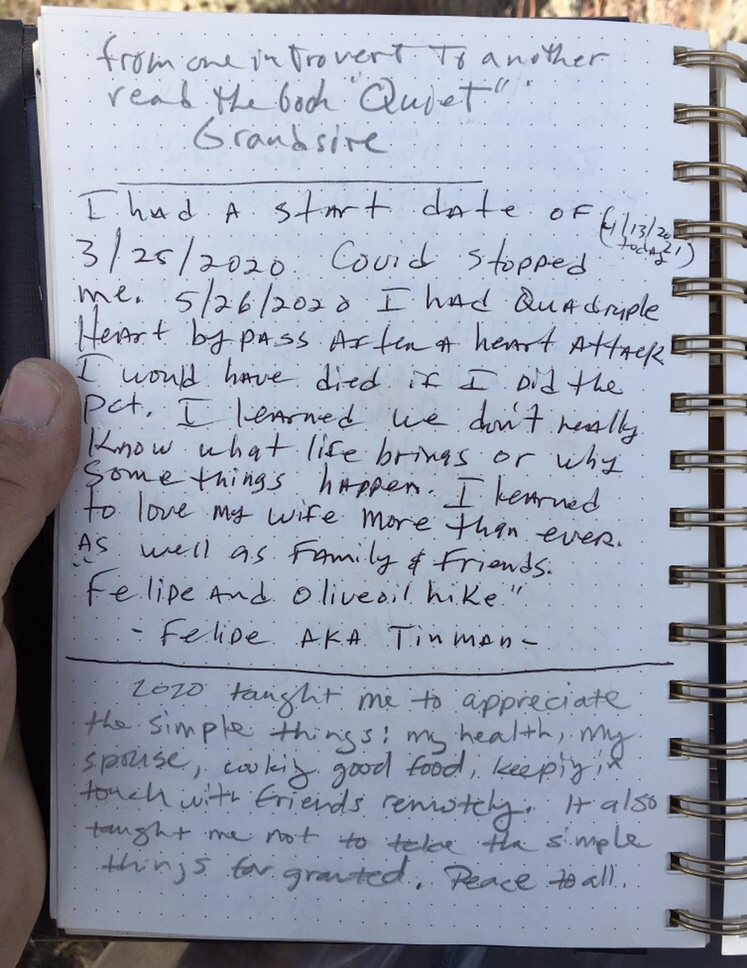 from one introvert to another
read the book "Quiet"
Grandsire
I had A start date of (4/13/2021 today)
3/25/2020. Covid stopped
me. 5/26/2020 I had Quadruple
Heart bypass After A heart Attack
I would have died if I did the
pct. I learned we don't really
know what life brings or why
some things happen. I learned
to love my wife more than ever.
As well as Family & Friends.
Felipe And Oliveoil hike"
- Felipe AKA Tinman -
2020 taught me to appreciate
the simple things: my health, my
spouse, cooking good food, keeping in
touch with friends remotely. It also
taught me not to take the simple
things for granted. Peace to all.